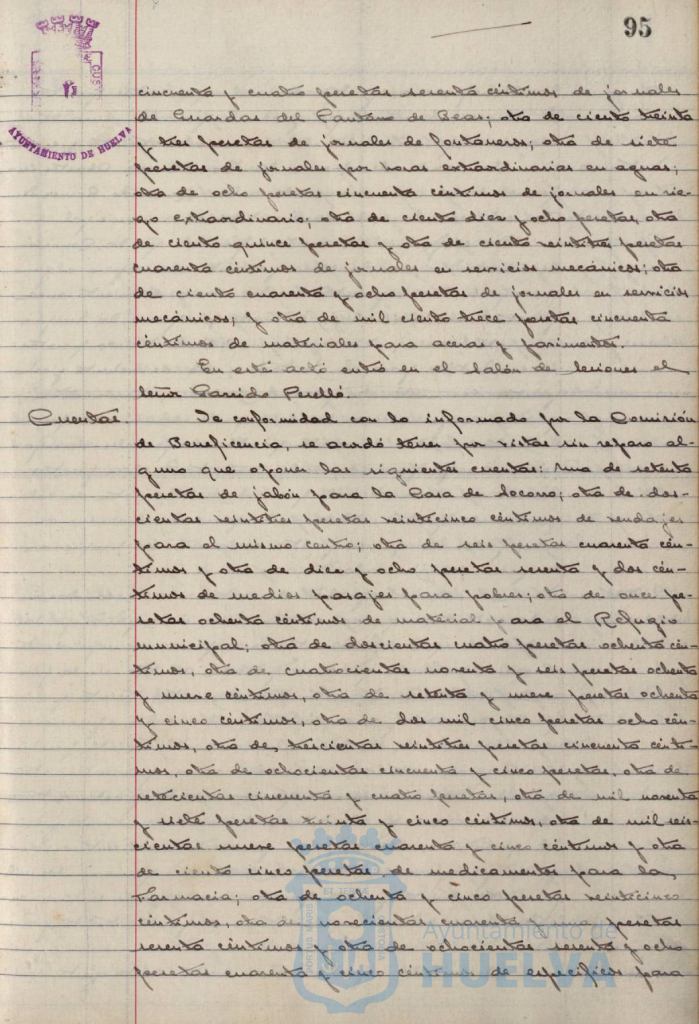 95
AYUNTAMIENTO DE HUELVA
cincuenta y cuatro pesetas sesenta céntimos de jornales
de Guardas del Pantano de Beas; otra de ciento treinta
y tres pesetas de jornales de fontaneros; otra de siete
pesetas de jornales por horas extraordinarias en aguas;
otra de ocho pesetas cincuenta céntimos de jornales en rie-
go extraordinario; otra de ciento diez y ocho pesetas, otra
de ciento quince pesetas y otra de ciento veintitres pesetas
cuarenta céntimos de jornales en servicios mecánicos; otra
de ciento cuarenta y ocho pesetas de jornales en servicios
mecánicos; y otra de mil ciento trece pesetas cincuenta
céntimos de materiales para aceras y pavimentos.
En este acto entró en el Salón de sesiones el
señor Garrido Perelló.
Cuentas.
De conformidad con lo informado por la Comisión
de Beneficencia, se acordó tener por vistas sin reparo al-
guno que oponer las siguientes cuentas: Una de setenta
pesetas de jabón para la Casa de Socorro; otra de dos-
cientas veintitres pesetas veinticinco céntimos de vendajes
para el mismo centro; otra de seis pesetas cuarenta cén-
timos y otra de diez y ocho pesetas sesenta y dos cén-
timos de medios pasajes para pobres; otra de once pe-
setas ochenta céntimos de material para el Refugio
municipal; otra de doscientas cuatro pesetas ochenta cén-
timos, otra de cuatrocientas noventa y seis pesetas ochenta
y nueve céntimos, otra de setenta y nueve pesetas ochenta
y cinco céntimos, otra de dos mil cinco pesetas ocho cén-
timos, otra de trescientas veintitres pesetas cincuenta cénti-
mos, otra de ochocientas cincuenta y cinco pesetas, otra de
setecientas cincuenta y cuatro pesetas, otra de mil noventa
y siete pesetas treinta y cinco céntimos, otra de mil seis-
cientas nueve pesetas cuarenta y cinco céntimos y otra
de ciento cinco pesetas, de medicamentos para la
Farmacia; otra de ochenta y cinco pesetas veinticinco
céntimos, otra de novecientas cuarenta y pesetas
sesenta céntimos y otra de ochocientas sesenta y ocho
pesetas cuarenta y cinco céntimos de específicos para
Ayuntamiento de
HUELVA